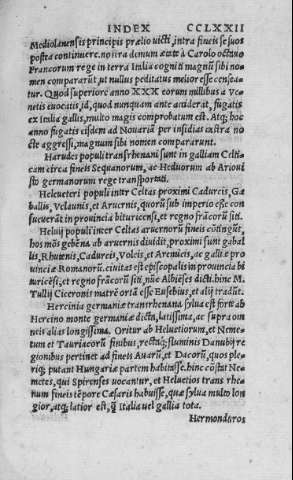 INDEX CCLXXII
Mediolanensis principis prælio uicti, intra fineis se suos
postea continuere. no ita denum ætate à Carolo octauo
Francorum rege in terra Italia cogniti magnū sibi no
men compararūt, ut nullus peditatus melior esse censea-
tur. Quod superiore anno XXX eorum millibus a Ve
netis euocatis, id, quod nunquam ante acciderat, fugatis
ex Italia gallis, multo magis comprobatum est. Atq; hoc
anno fugatis eisdem ad Nouariā per insidias extra no
cte aggressi, magnum sibi nomen compararunt.
Harudes populi transrhenani sunt in galliam Celti
cam circa fineis Sequanorum, ac Heduorum ab Arioui
sto germanorum rege transportati.
Heleuteri populi inter Celtas proximi Cadurcis, Ga
ballis, Velaunis, et Aruernis, quorū sub imperio esse con
sueuerāt in prouincia bituricensi, et regno frācorū siti.
Heluij populi inter Celtas aruernorū fineis cōtingūt,
hos mōs gebēna ab aruernis diuidit, proximi sunt gabal
lis, Rhutenis, Cadurcis, Volcis, et Arenicis, ac galliæ pro
uinciæ Romanorū. ciuitas est episcopalis in prouincia bi
turicēsi, et regno frācorū siti, nūc Albiēses dicti. hinc M.
Tullij Ciceronis matrē ortā esse Eusebius, et alij tradūt.
Hercinia germaniæ transrhenana sylua est forte ab
Hercino monte germaniæ dicta, latissima, ac supra om
neis alias longissima. Oritur ab Heluetiorum, et Neme-
tum et Tauriacorū finibus, rectāq; fluminis Danubij re
gionibus pertinet ad fineis Auarū, et Dacorū, quos ple-
riq; putant Hungariæ partem habuisse. hinc cōstat Ne
metes, qui Spirenses uocantur, et Heluetios trans rhe-
num fineis tēpore Cæsaris habuisse, quæ sylua multo lon
gior, atq; latior est, q̄ Italia uel gallia tota.
Hermonduros